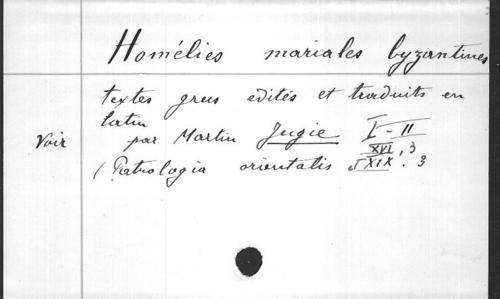 Homélies mariales byzantines
textes grecs édités et traduits en
latin
Voir par Martin Jugie I - II
XVI, 3
(Patrologia orientalis XIX. 3